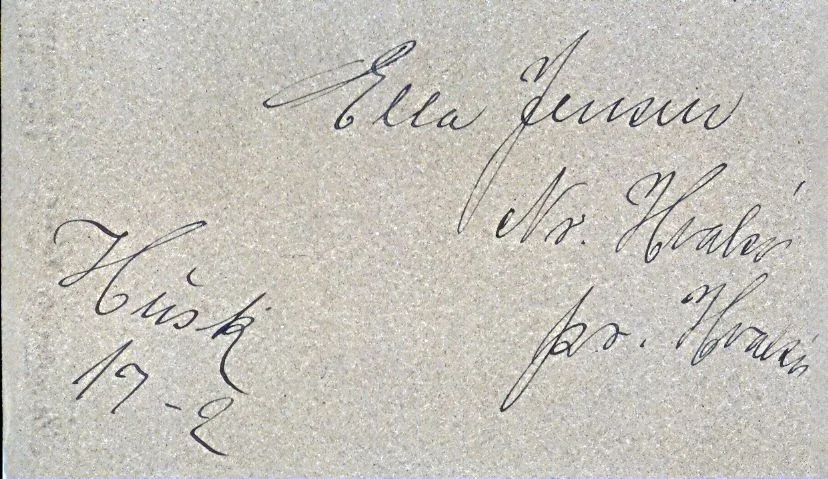 Ella Jensen
Nr. Hvalsø
pr. Hvalsø
Husk
17-2